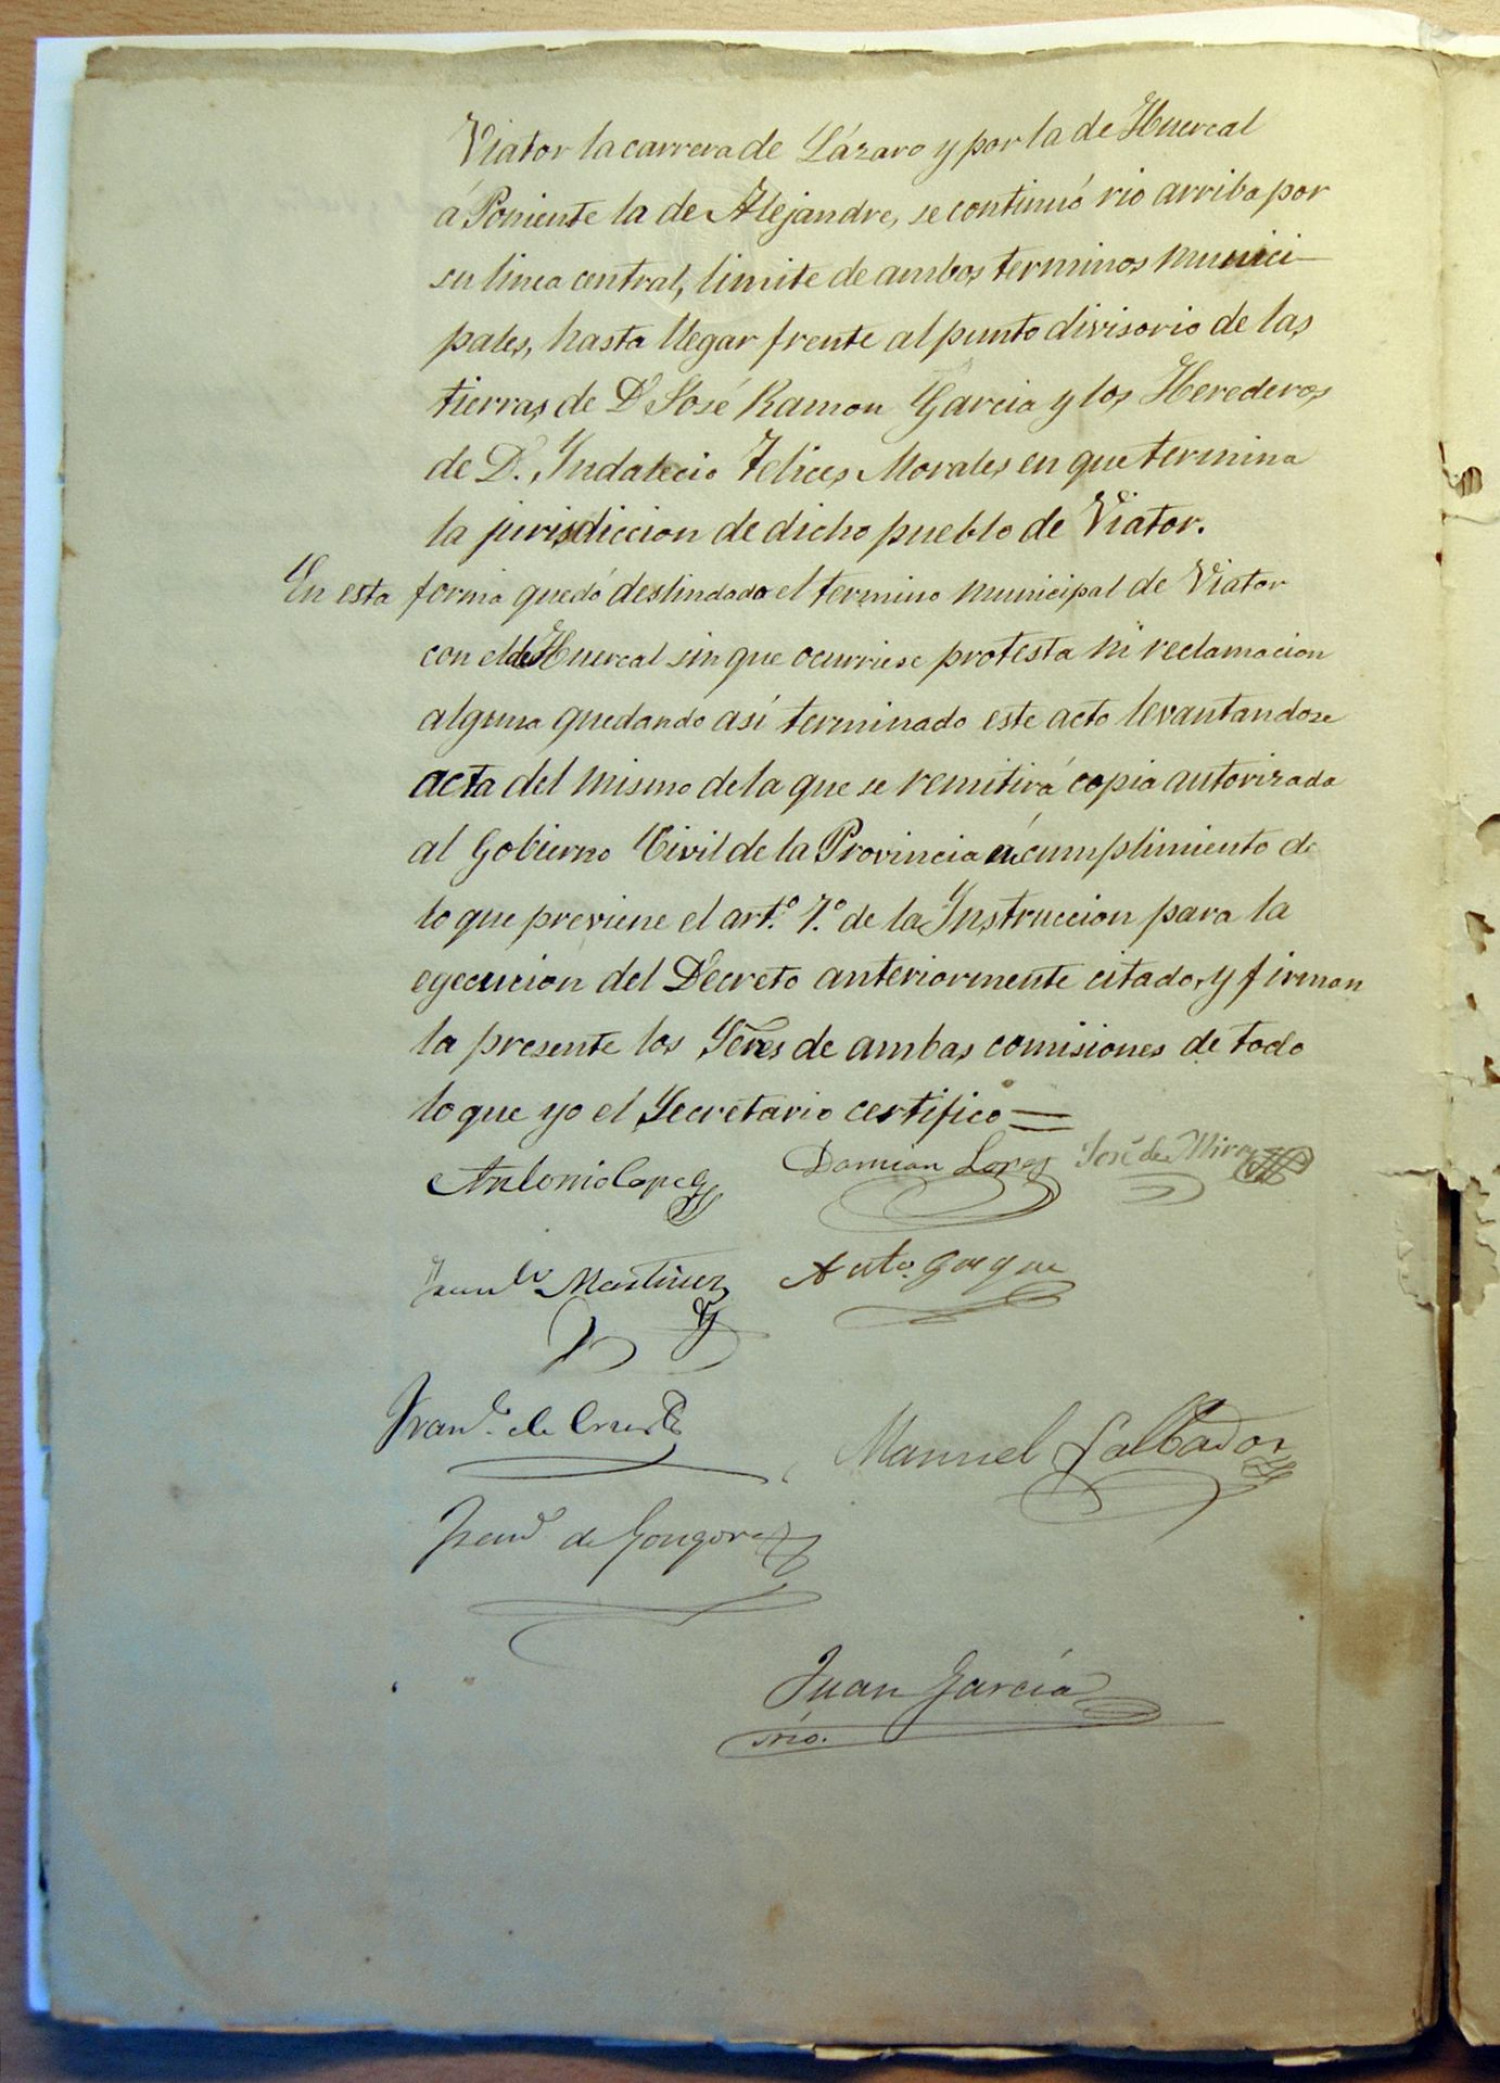 Viator la carrera de Lázaro y por la de Huercal
á Poniente la de Alejandre, se continuó rio arriba por
su linea central, limite de ambos terminos munici-
pales, hasta llegar frente al punto divisorio de las
tierras de D José Ramon Garcia y los Herederos
de D. Yndalecio Felices Morales en que termina
la jurisdiccion de dicho pueblo de Viator.
En esta forma quedó deslindado el termino municipal de Viator
con el de Huercal sin que ocurriese protesta ni reclamacion
alguna quedando así terminado este acto levantandose
acta del mismo de la que se remitirá copia autorizada
al Gobierno Civil de la Provincia en cumplimiento de
lo que previene el art.º 7.º de la Ynstruccion para la
egecucion del Decreto anteriormente citado, y firman
la presente los Señes de ambas comisiones de todo
lo que yo el Secretario certifico =
Antonio Lopez Damian Lopez José de Miras
Martinez Anto.
Fran.º de Manuel Salbador
Fran.º de Gongora
Juan García
Srio.